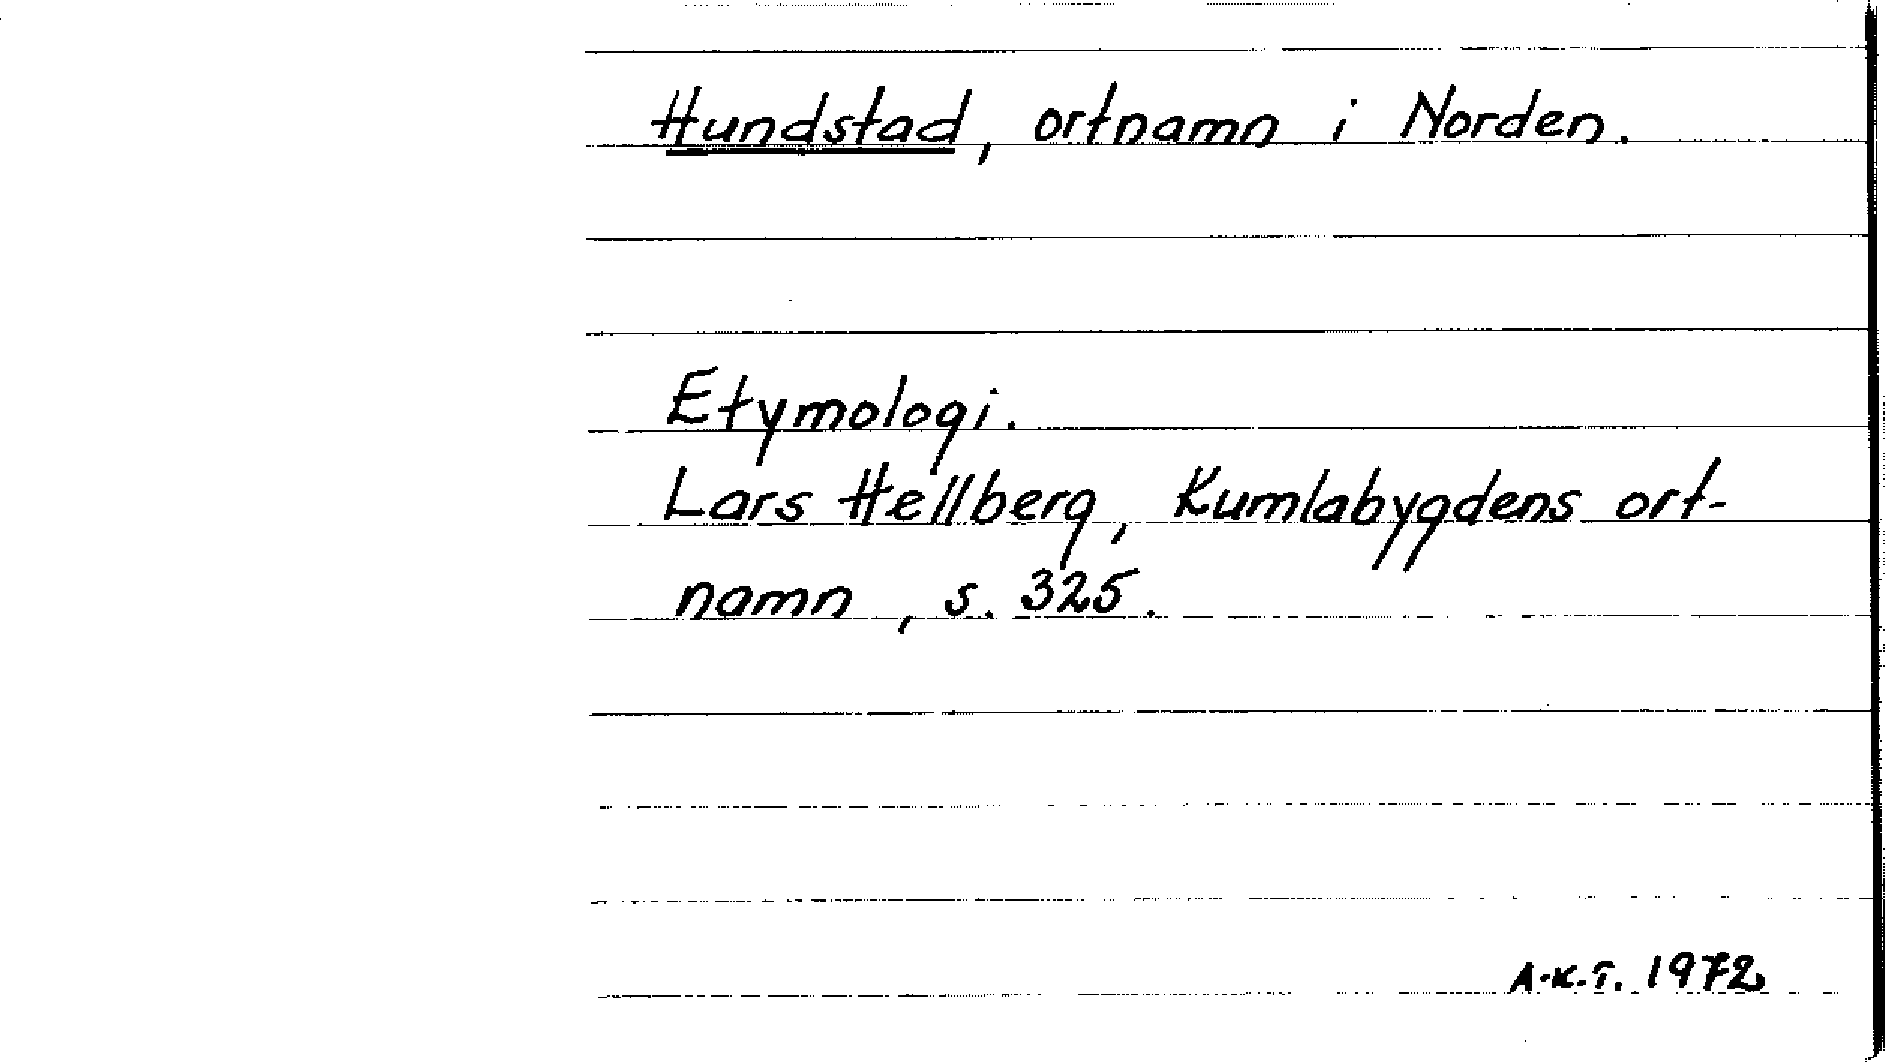 Hundstad, ortnamn i Norden.
Etymologi.
Lars Hellberg, Kumlabygdens ort-
namn, s. 325.
A-K.T. 1972